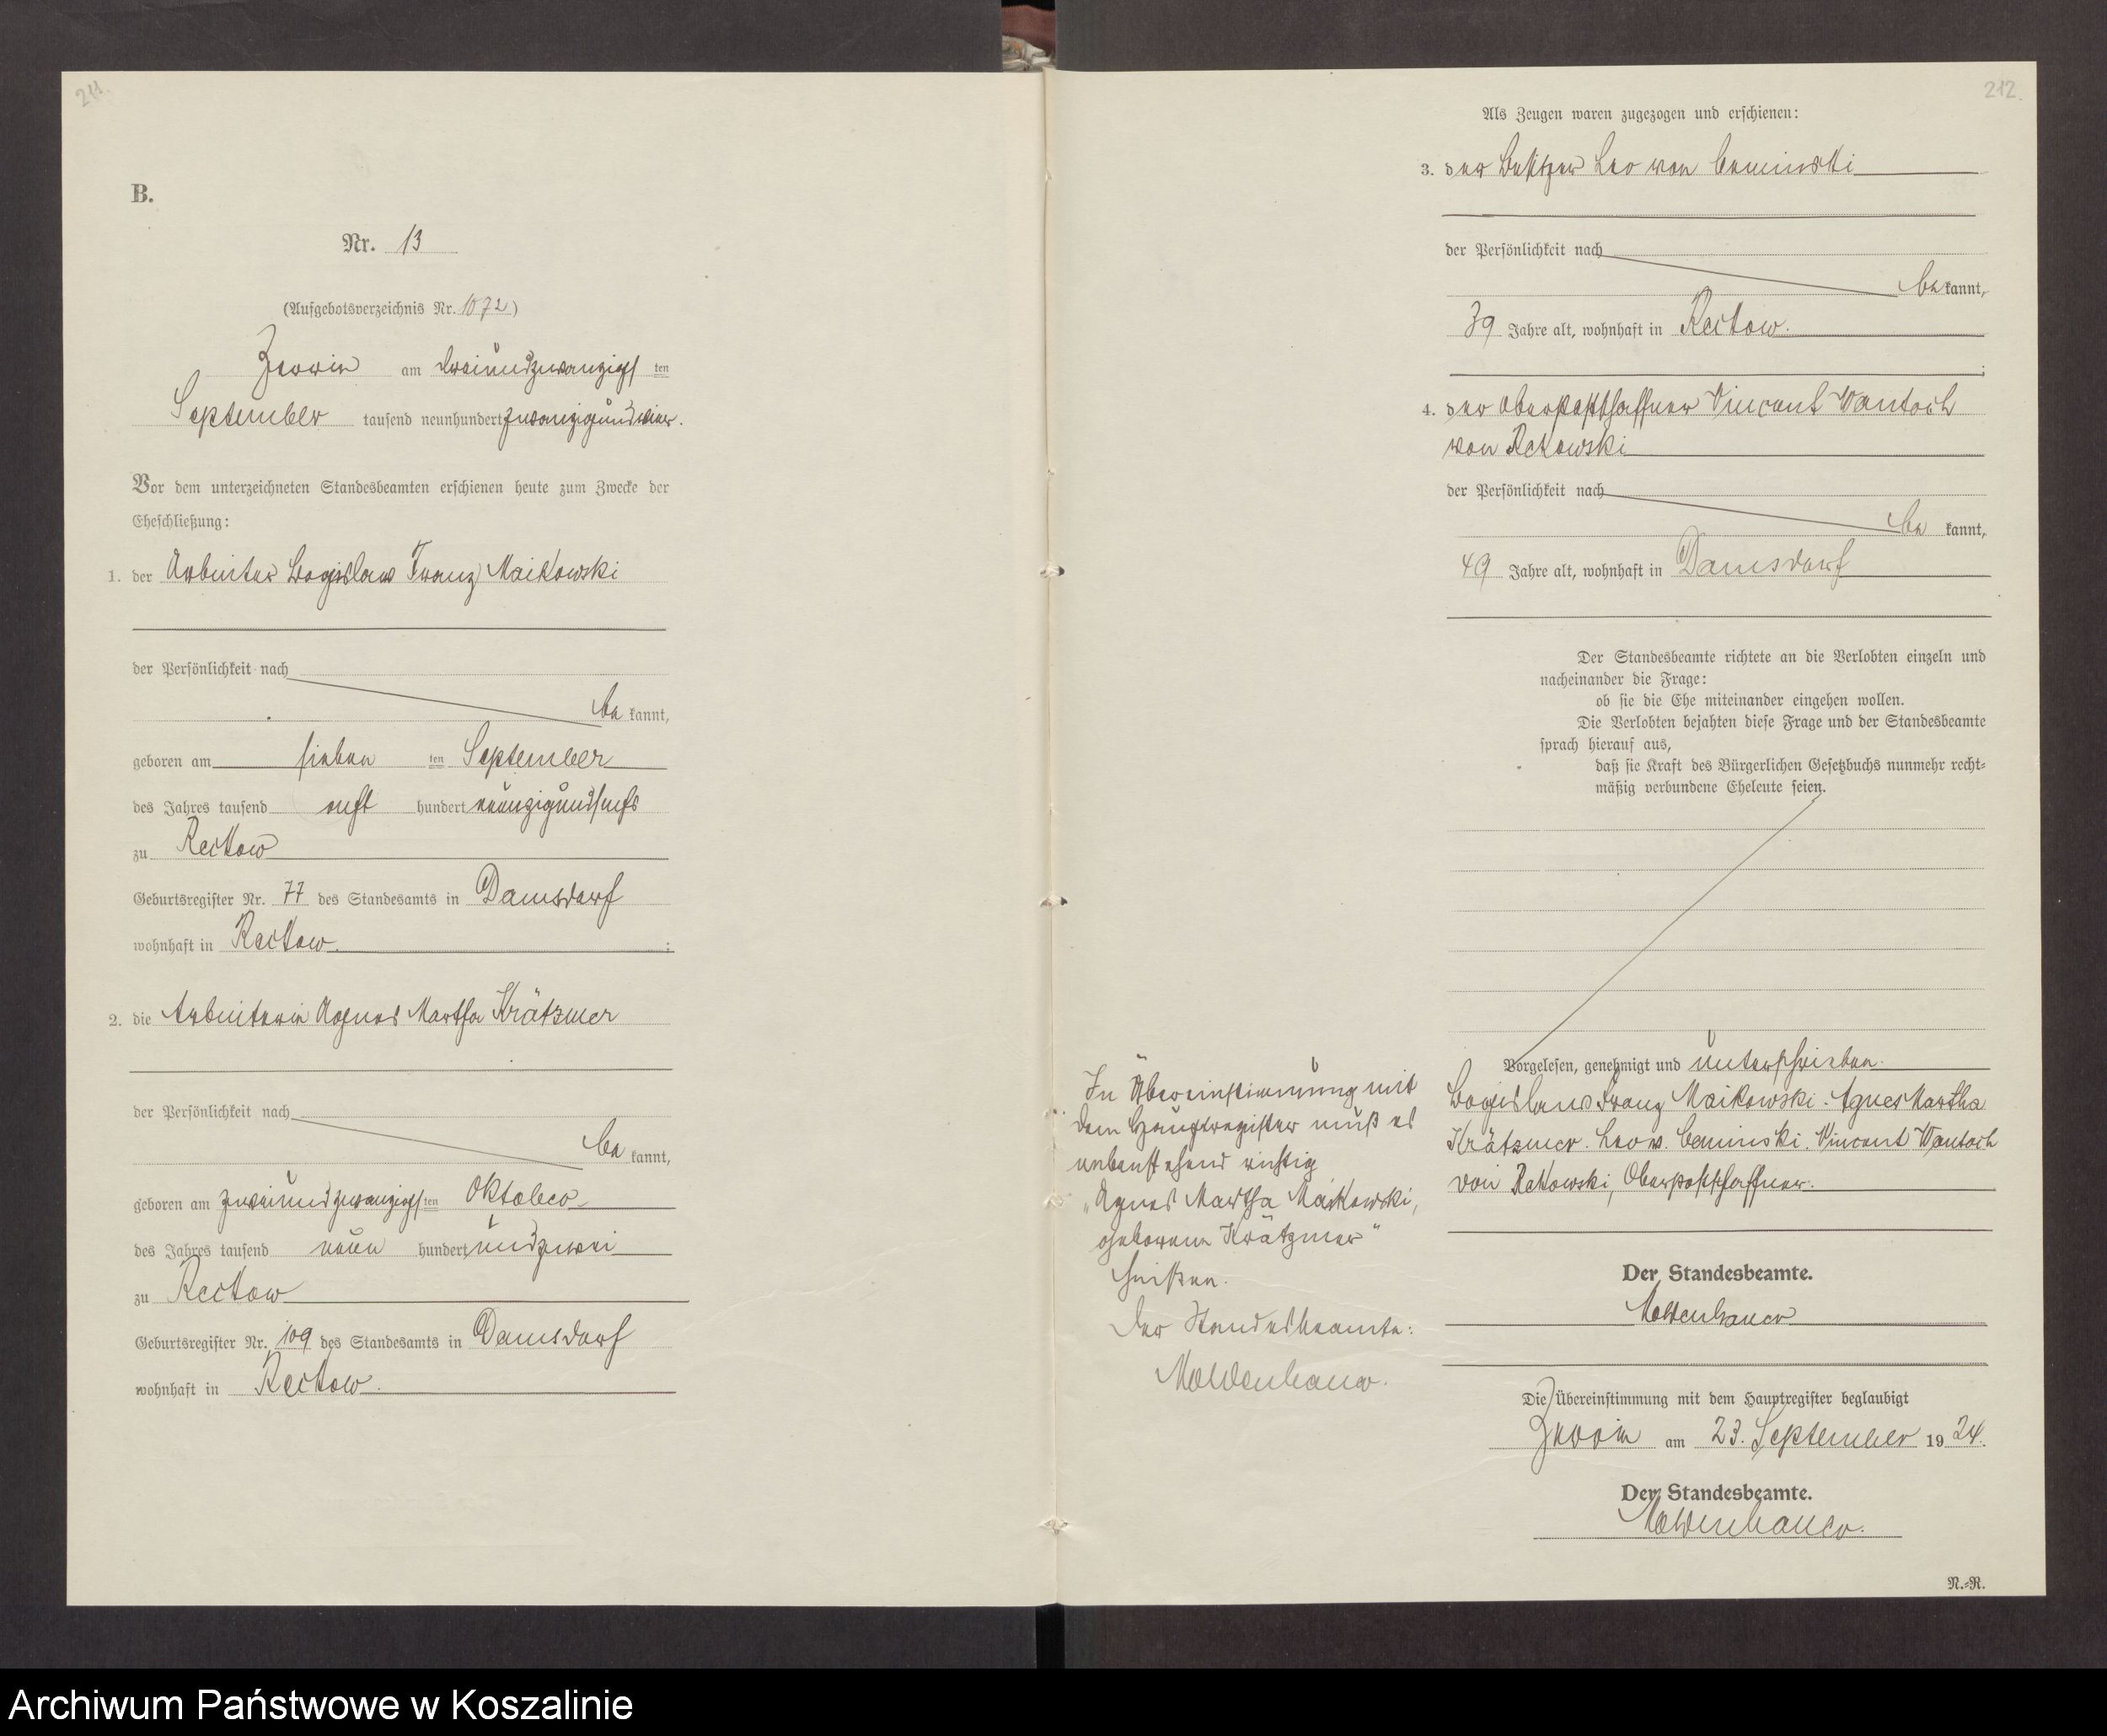 211.
B.
Nr. 13
(Aufgebotsverzeichnis Nr. 1072)
Zerrin am dreiundzwanzigsten
September tausend neunhundert zwanzigundvier.
Vor dem unterzeichneten Standesbeamten erschienen heute zum Zwecke der
Eheschließung:
1. der Arbeiter Bogislaw Franz Maikowski
der Persönlichkeit nach
bekannt,
geboren am siebenten September
des Jahres tausend acht hundert neunzigundsechs
zu Reckow
Geburtsregister Nr. 77 des Standesamts in Damsdorf
wohnhaft in Reckow.;
2. die Arbeiterin Agnes Martha Krätzmer
der Persönlichkeit nach
bekannt,
geboren am zweiundzwanzigsten Oktober
des Jahres tausend neun hundert undzwei
zu Reckow
Geburtsregister Nr. 109 des Standesamts in Damsdorf
wohnhaft in Reckow.
212.
Als Zeugen waren zugezogen und erschienen:
3. der Besitzer Leo von Ceminski
der Persönlichkeit nach
bekannt,
39 Jahre alt, wohnhaft in Reckow.
;
4. der Oberpostschaffner Vincent Wantoch
von Rekowski
der Persönlichkeit nach
bekannt,
49 Jahre alt, wohnhaft in Damsdorf
Der Standesbeamte richtete an die Verlobten einzeln und
nacheinander die Frage:
ob sie die Ehe miteinander eingehen wollen.
Die Verlobten bejahten diese Frage und der Standesbeamte
sprach hierauf aus,
daß sie Kraft des Bürgerlichen Gesetzbuchs nunmehr recht-
mäßig verbundene Eheleute seien.
Vorgelesen, genehmigt und unterschrieben.
Bogislaw Franz Maikowski. Agnes Martha
Krätzmer. Leo v. Ceminski. Vincent Wantoch
von Rekowski, Oberpostschaffner.
In Übereinstimmung mit
dem Hauptregister muß es
nebenstehend richtig
„Agnes Martha Maikowski,
geborene Krätzmer"
heißen.
Der Standesbeamte:
Moldenhauer.
Der Standesbeamte.
Moldenhauer
Die Übereinstimmung mit dem Hauptregister beglaubigt
Zerrin am 23. September 1924.
Der Standesbeamte.
Moldenhauer.
N.-R.
Archiwum Państwowe w Koszalinie